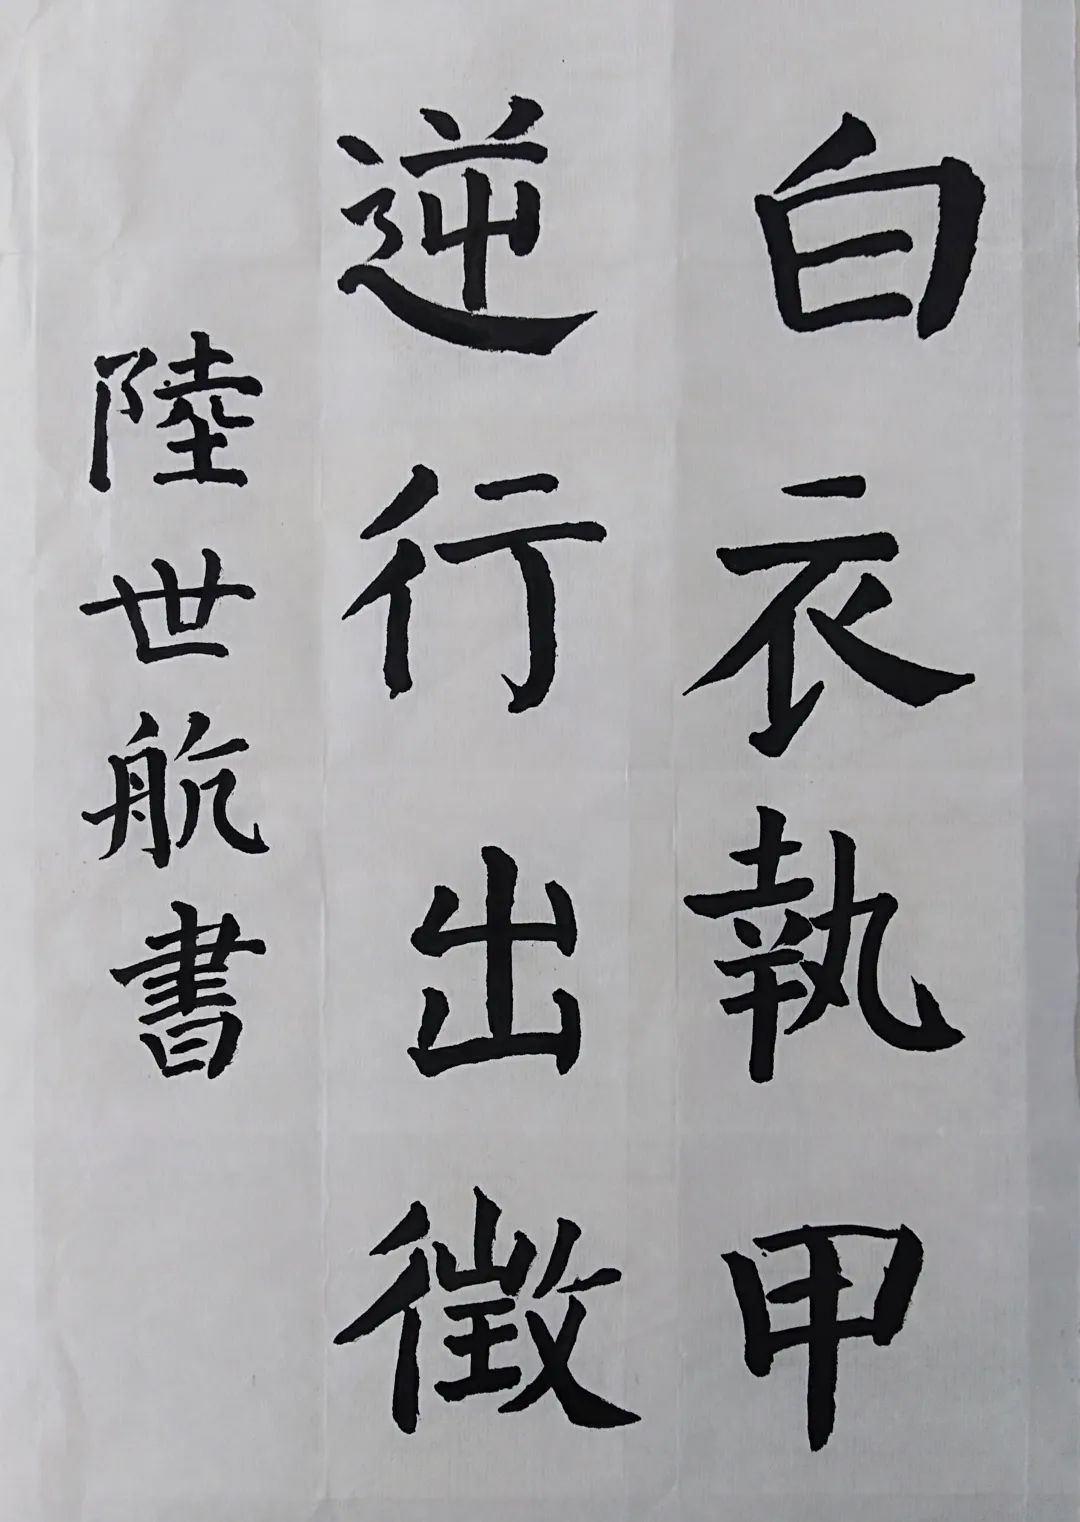 白衣執甲
逆行出徵
陸世航書